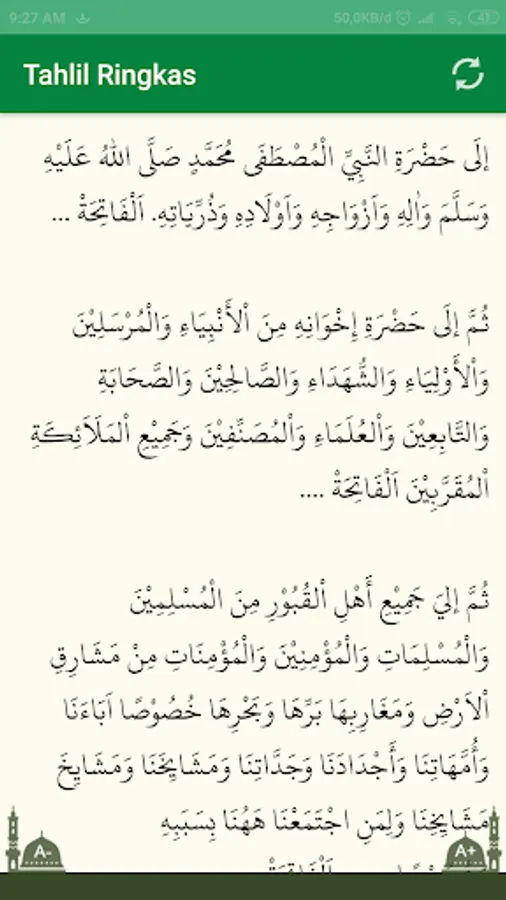 9:27 AM
50,0KB/d
41
Tahlil Ringkas
إِلَى حَضْرَةِ النَّبِيِّ الْمُصْطَفَى مُحَمَّدٍ صَلَّى اللهُ عَلَيْهِ
وَسَلَّمَ وَاٰلِهِ وَاَزْوَاجِهِ وَاَوْلَادِهِ وَذُرِّيَاتِهِ. اَلْفَاتِحَةْ ...
ثُمَّ إِلَى حَضْرَةِ إِخْوَانِهِ مِنَ اْلأَنْبِيَاءِ وَالْمُرْسَلِيْنَ
وَاْلأَوْلِيَاءِ وَالشُّهَدَاءِ وَالصَّالِحِيْنَ وَالصَّحَابَةِ
وَالتَّابِعِيْنَ وَاْلعُلَمَاءِ وَاْلمُصَنِّفِيْنَ وَجَمِيْعِ اْلمَلَاَئِكَةِ
اْلمُقَرَّبِيْنَ اَلْفَاتِحَةْ ....
ثُمَّ إِليَ جَمِيْعِ أَهْلِ اْلقُبُوْرِ مِنَ الْمُسْلِمِيْنَ
وَالْمُسْلِمَاتِ وَالْمُؤْمِنِيْنَ وَالْمُؤْمِنَاتِ مِنْ مَشَارِقِ
اْلاَرْضِ وَمَغَارِبِهَا بَرِّهَا وَبَحْرِهَا خُصُوْصًا اَبَاءَنَا
وَأُمَّهَاتِنَا وَأَجْدَادَنَا وَجَدَّاتِنَا وَمَشَايِخَنَا وَمَشَايِخَ
مَشَايِخِنَا وَلِمَنِ اجْتَمَعْنَا هَهُنَا بِسَبَبِهِ
A-
A+